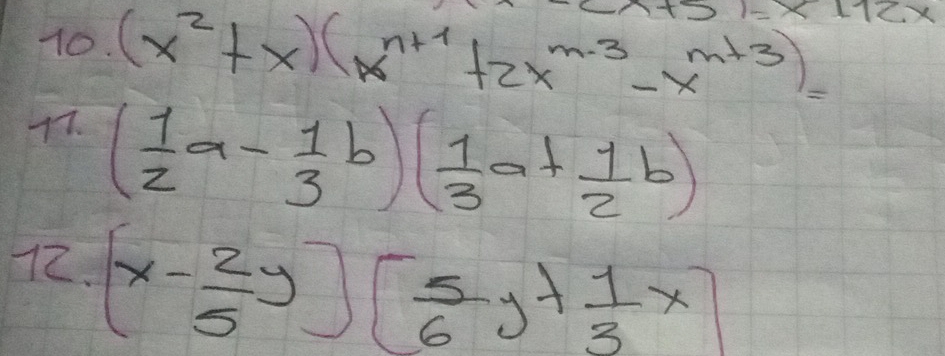 -2x+5)=x+12x
10. (x² + x)(xⁿ⁺¹ + 2xᵐ⁻³ - xᵐ⁺³) =
11. (1/2 a - 1/3 b)(1/3 a + 1/2 b)
12. [x - 2/5 y] [5/6 y + 1/3 x]